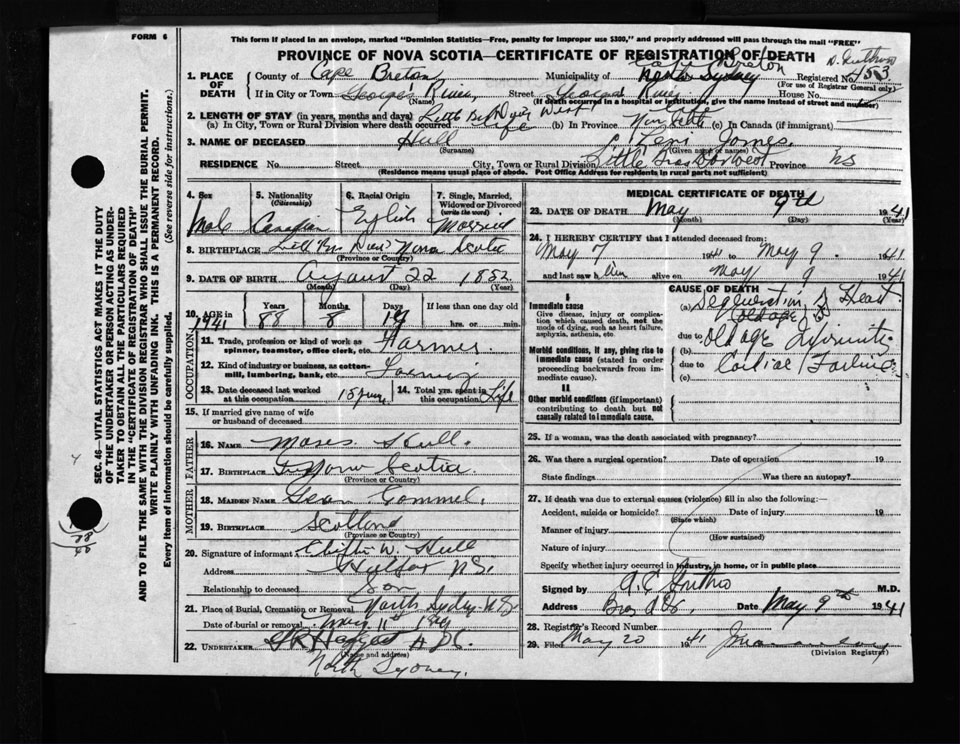 FORM 6
This form if placed in an envelope, marked "Dominion Statistics—Free, penalty for improper use $300," and properly addressed will pass through the mail "FREE"
PROVINCE OF NOVA SCOTIA—CERTIFICATE OF REGISTRATION OF DEATH
1. PLACE OF DEATH
County of Cape Breton
Municipality of Cape Breton North Sydney
Registered No. 4503
(For use of Registrar General only)
If in City or Town Georges River
(Name)
Street Georges River House No.
(If death occurred in a hospital or institution, give the name instead of street and number)
2. LENGTH OF STAY (in years, months and days) Little Bras Dor West
(a) In City, Town or Rural Division where death occurred Life (b) In Province Life (c) In Canada (if immigrant)
3. NAME OF DECEASED Hull Levi James
(Surname) (Given name or names)
RESIDENCE No. Street City, Town or Rural Division Little Bras Dor West Province NS
(Residence means usual place of abode. Post Office Address for residents in rural parts not sufficient)
4. Sex Male
5. Nationality (Citizenship) Canadian
6. Racial Origin English
7. Single, Married, Widowed or Divorced (write the word) Married
8. BIRTHPLACE Little Bras Dor Nova Scotia
(Province or Country)
9. DATE OF BIRTH August 22 1852
(Month) (Day) (Year)
10. AGE in Years Months Days If less than one day old
1941 88 8 hrs. or min.
OCCUPATION
11. Trade, profession or kind of work as spinner, teamster, office clerk, etc. Farmer
12. Kind of industry or business, as cotton-mill, lumbering, bank, etc. Farming
13. Date deceased last worked at this occupation 15 years
14. Total yrs. spent in this occupation Life
15. If married give name of wife or husband of deceased
FATHER
16. NAME Moses Hull
17. BIRTHPLACE Nova Scotia
(Province or Country)
MOTHER
18. MAIDEN NAME Gammel
19. BIRTHPLACE Scotland
(Province or Country)
20. Signature of informant W. Hull
Address Halifax N.S.
Relationship to deceased Son
21. Place of Burial, Cremation or Removal North Sydney N.S.
Date of burial or removal May 11th 1941
22. UNDERTAKER
(Name and address)
North Sydney
MEDICAL CERTIFICATE OF DEATH
23. DATE OF DEATH May 9th 1941
(Month) (Day)
24. I HEREBY CERTIFY that I attended deceased from:
May 7 1941 to May 9 1941
and last saw him alive on May 9 1941
CAUSE OF DEATH
I
Immediate cause
Give disease, injury or complication which caused death, not the mode of dying, such as heart failure, asphyxia, asthenia, etc.
(a) Degeneration of Heart
Old age
Morbid conditions, if any, giving rise to immediate cause (stated in order proceeding backwards from immediate cause).
due to Old age
(b)
due to Cardiac Failure
(c)
II
Other morbid conditions (if important) contributing to death but not causally related to immediate cause.
25. If a woman, was the death associated with pregnancy?
26. Was there a surgical operation? Date of operation 19
State findings Was there an autopsy?
27. If death was due to external causes (violence) fill in also the following:—
Accident, suicide or homicide? Date of injury 19
(State which)
Manner of injury
(How sustained)
Nature of injury
Specify whether injury occurred in industry, in home, or in public place
Signed by M.D.
Address Date May 9th 1941
28. Registrar's Record Number
29. Filed May 20 1941
(Division Registrar)
SEC. 46—VITAL STATISTICS ACT MAKES IT THE DUTY OF THE UNDERTAKER OR PERSON ACTING AS UNDERTAKER TO OBTAIN ALL THE PARTICULARS REQUIRED IN THE "CERTIFICATE OF REGISTRATION OF DEATH" AND TO FILE THE SAME WITH THE DIVISION REGISTRAR WHO SHALL ISSUE THE BURIAL PERMIT.
WRITE PLAINLY WITH UNFADING INK. THIS IS A PERMANENT RECORD.
Every item of information should be carefully supplied. (See reverse side for instructions.)